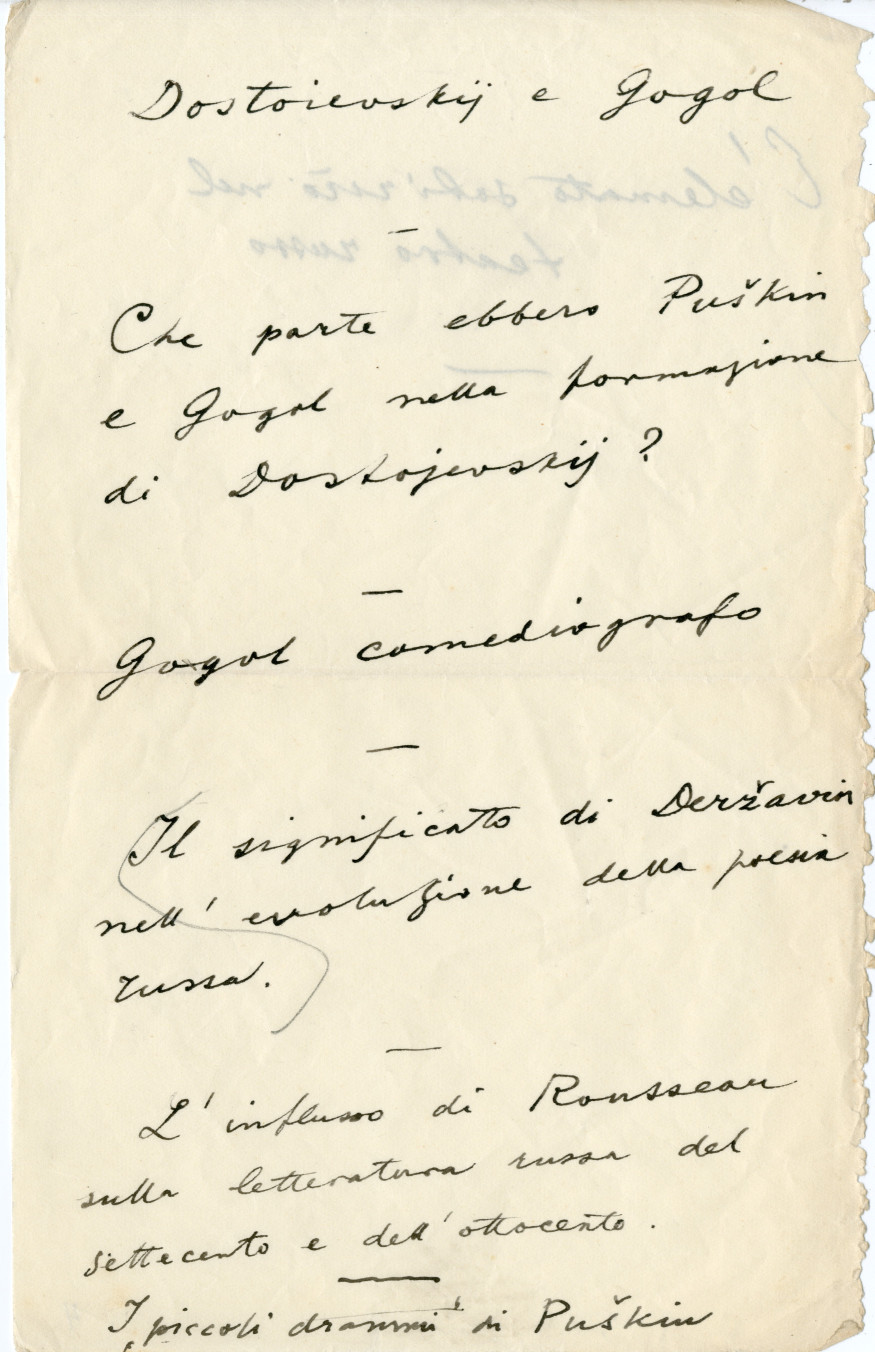 Dostoievskij e Gogol
—
Che parte ebbero Puškin
e Gogol nella formazione
di Dostojevskij ?
—
Gogol comediografo
—
Il significato di Deržavin
nell' evoluzione della poesia
russa.
—
L' influsso di Rousseau
sulla letteratura russa del
settecento e dell' ottocento.
—
I „piccoli drammi" di Puškin